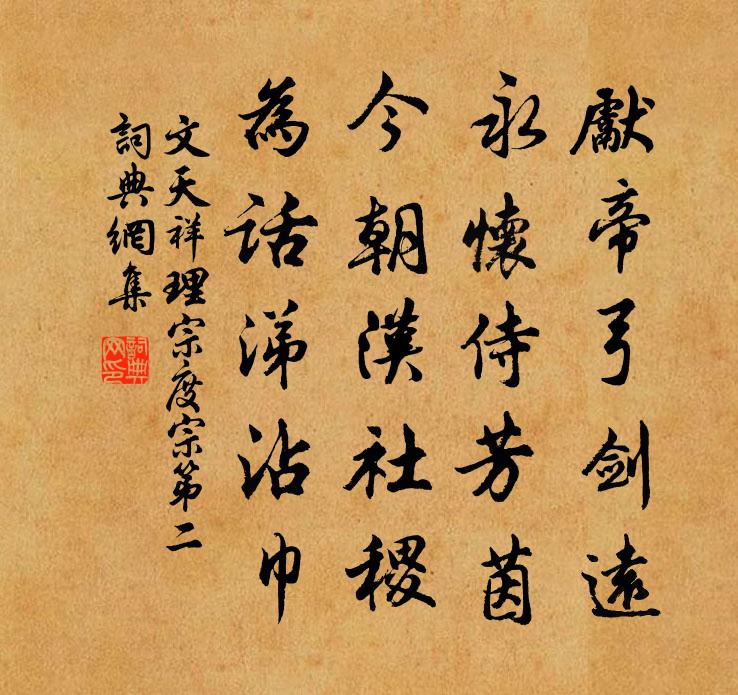 獻帝弓劍遠
永懷侍芳茵
今朝漢社稷
為話涕沾巾
文天祥理宗度宗第二
詞典網集
詞典
网印